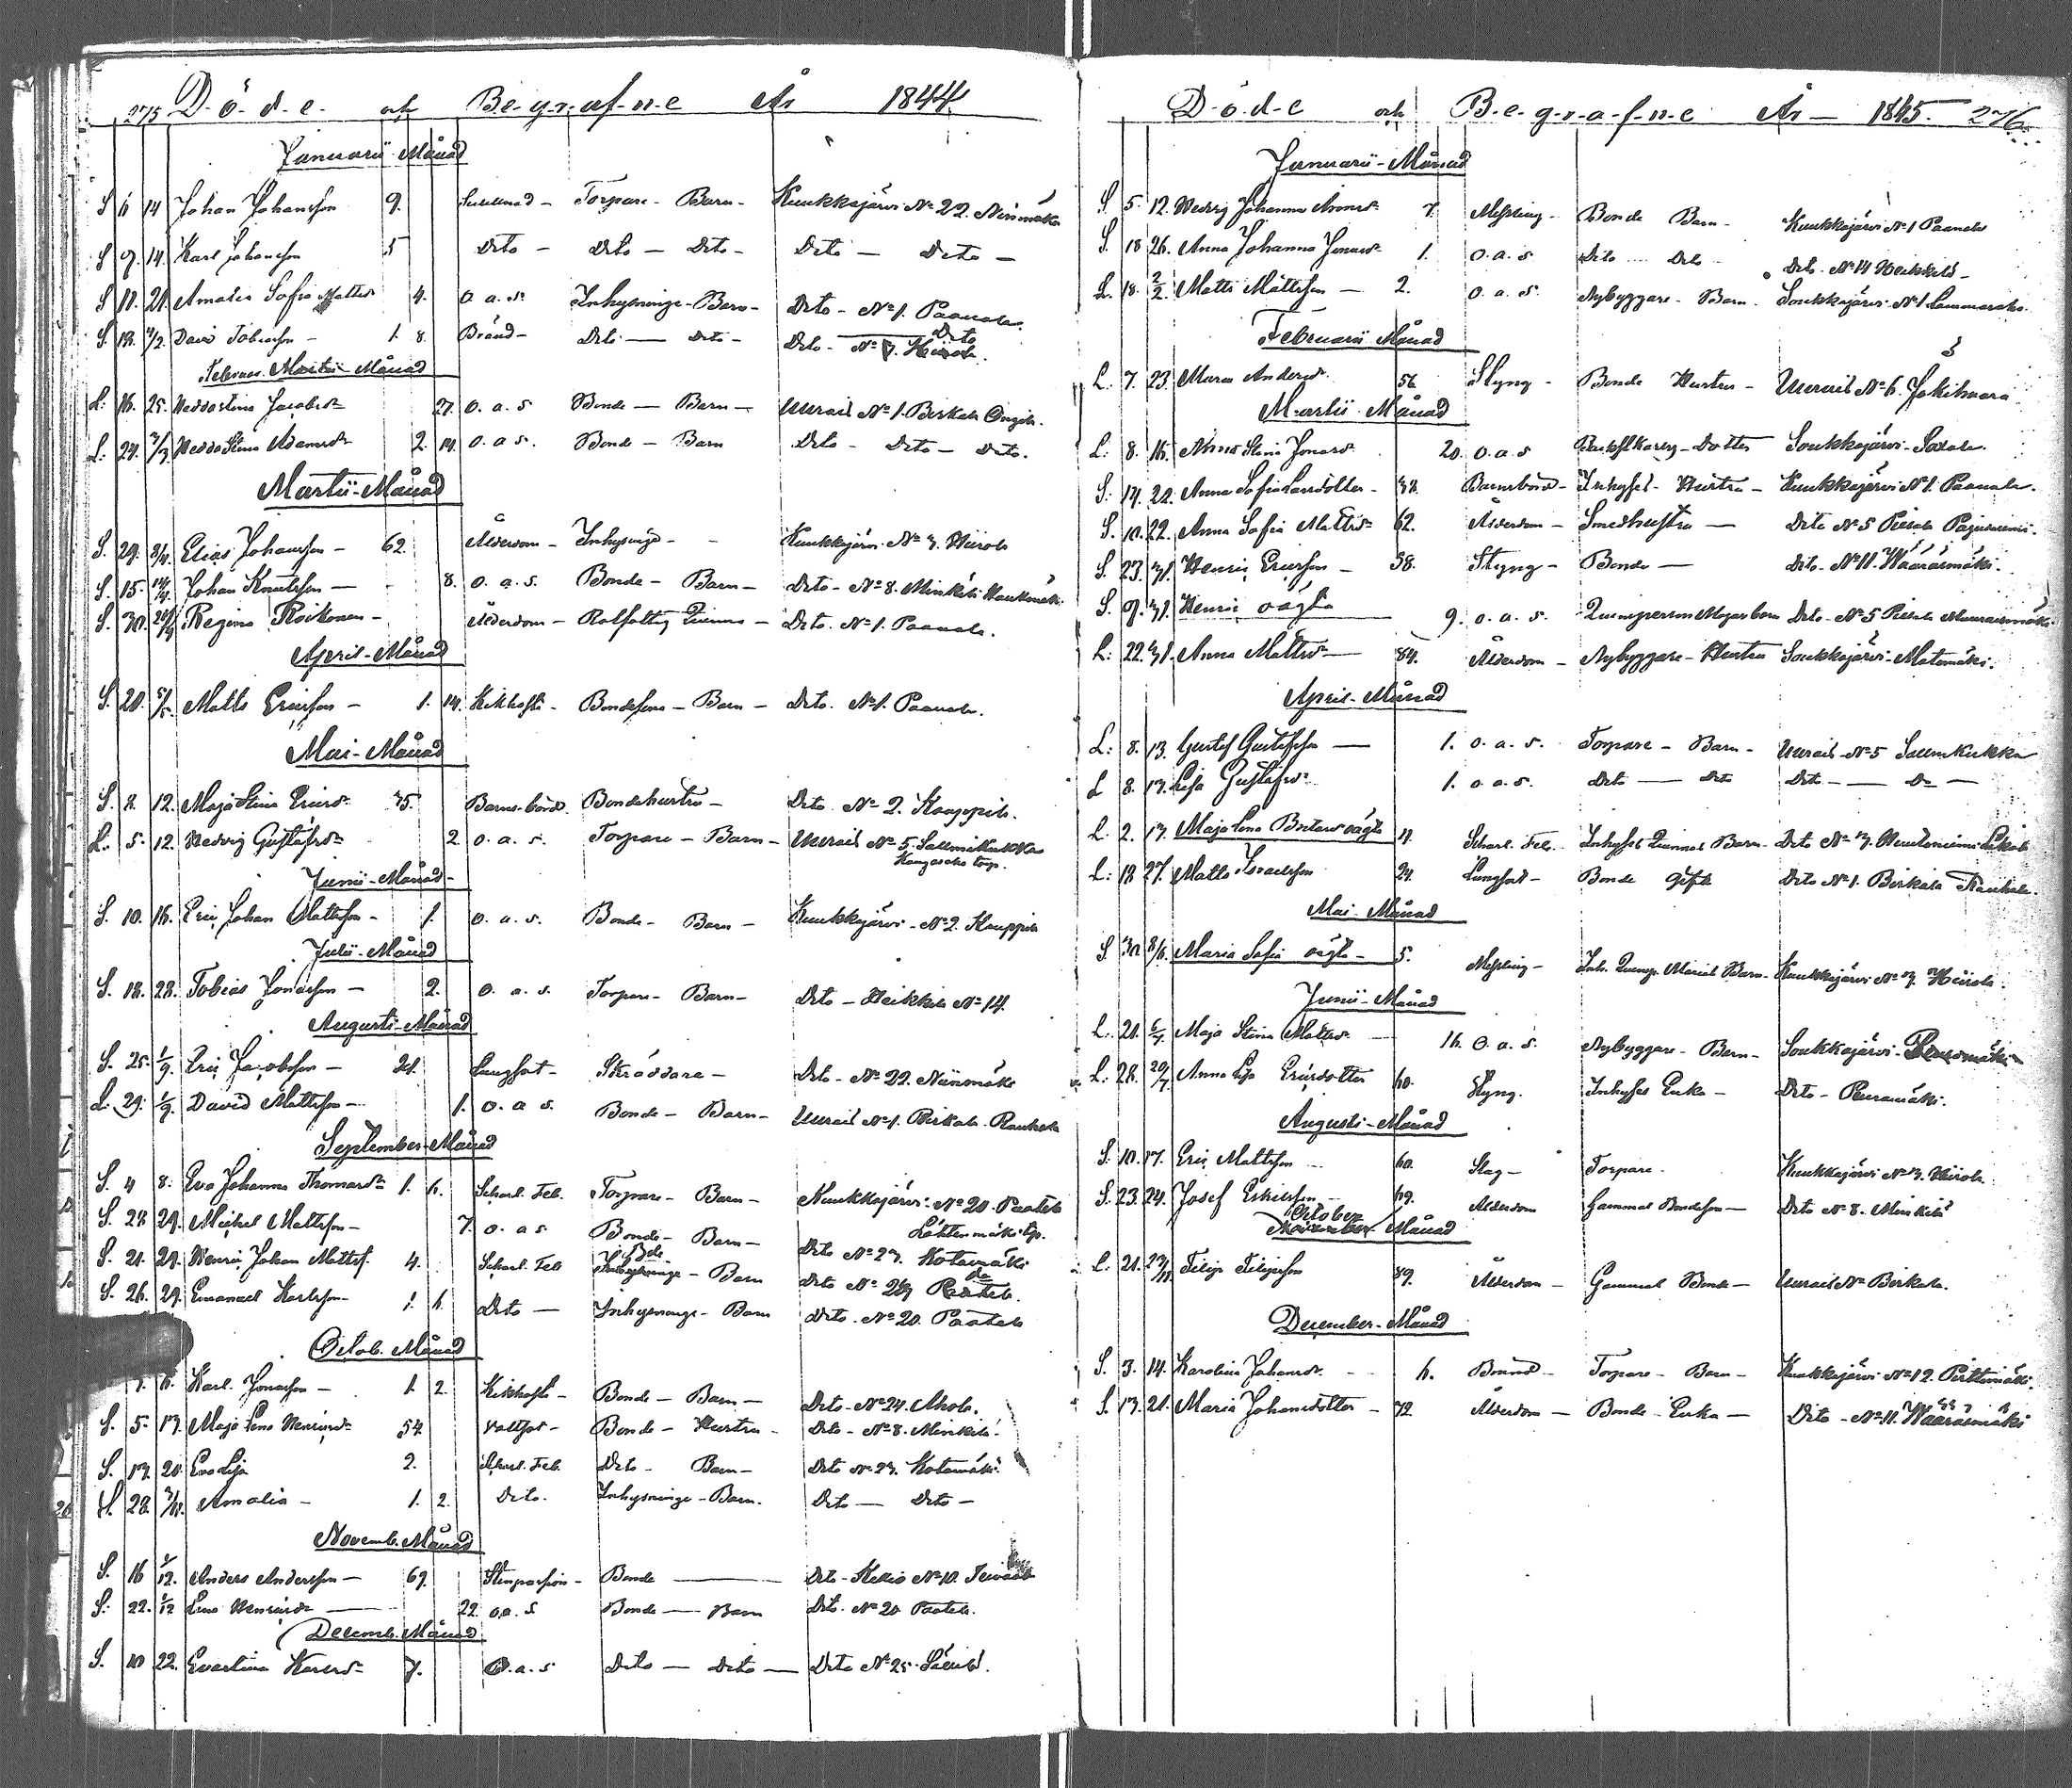 275 D-ö-d-e och B-e-g-r-a-f-n-e År 1844
Januarii Månad
S 6 14 Johan Johansson 9. Torpare - Barn - Kuukkajärvi No 22. Niinimäki
S 9. 14. Karl Johansson 5 Dito - Dito - Dito - Dito - Dito -
S 11. 21. Amalia Sofia Mattsdr 4. o. a. s. Inhysinge - Barn - Dito - No 1. Paanala.
S. 18. David Tobiasson - 1. 8. Bränd - Dito - Dito - Dito - No 7. Hiirola.
Martii Månad
L. 16. 25. Heddastina Jacobsdr 27. o. a. s Bonde - Barn - Uurais No 1. Birkala
L. 24. 3/3 Hedda Stina Adamsdr 2. 14. o. a. s. Bonde - Barn Dito - Dito - Dito.
Martii - Månad
S. 29. 8/4. Elias Johansson - 62. Ålderdom - Inhysinge - Kuukkajärvi No 7. Hiirola
S. 15. 14/4. Johan Knutsson - 8. o. a. s. Bonde - Barn - Dito - No 8. Minkilä
S. 30. Regina Roikonen - Ålderdom - Rotfattig Dito. No 1. Paanala.
April - Månad
S. 20. 5/5. Matts Ericsson - 1. 14. Kikhosta - Bondesons - Barn - Dito. No 1. Paanala.
Mai - Månad
S. 8. 12. Maja Stina Ericsdr 35. Barns-börd. Bondehustru - Dito No 2. Kauppila.
L. 5. 12. Hedvig Gustafsdr 2 o. a. s. Torpare - Barn - Uurais No 5. Sallmikukka
Kangasaho torp.
Junii - Månad -
S. 10. 16. Eric Johan Mattsson - 1. o. a. s. Bonde - Barn - Kuukkajärvi - No 2. Kauppila
Julii - Månad
S. 18. 28. Tobias Jonasson - 2. o. a. s. Torpare - Barn - Dito - Heikkilä No 14.
Augusti - Månad
S. 25. 1/9. Eric Jacobsson - 21. Lungsot - Skräddare - Dito - No 22. Niinimäki
L. 29. 1/9. David Mattsson - 1. o. a. s. Bonde - Barn - Uurais No 1. Birkala - Rauhala
September - Månad
S. 4 8. Eva Johanna Thomasdr 1. 6. Scharl. Feb. Torpare - Barn - Kuukkajärvi - No 20. Paatela
S. 28 29. Michel Mattsson - 7. o. a s Bonde - Barn - Dito No 27. Kotamäki
S. 21. 29. Henric Johan Mattss. 4. Scharl. Feb Inhysinge - Barn Dito No
S. 26. 29. Emanuel Karlsson - 1. 6. Dito - Inhysinge - Barn Dito. No 20. Paatela
Octob. Månad
6. Karl. Jonasson - 1. 2. Kikhosta - Bonde - Barn - Dito - No 24. Ahola.
S. 5. 13. Maja Lena Henricsdr 54. Bonde - Hustru - Dito - No 8. Minkilä.
S. 13. 20. Eva Lisa 2. Scharl. Feb. Dito - Barn - Dito No 27. Kotamäki.
S. 28. Amalia - 1. 2. Dito. Inhysinge - Barn. Dito - Dito -
Novemb. Månad
S. 16 1/12. Anders Andersson - 67. Bonde - Dito - No 10.
S. 22. 1/12 Lena Henricsdr - 22. o. a. s Bonde - Barn Dito. No 20 Paatela.
Decemb. Månad
S. 10 22. Evastina 7. o. a. s Dito - Dito - Dito No 25.
D-ö-d-e och B-e-g-r-a-f-n-e År - 1845. 276.
Januarii - Månad
S. 5. 12. Hedvig Johanna 7. Messling - Bonde Barn - Kuukkajärvi No 1 Paanala
S. 18 26. Anna Johanna Jonasdr 1. o. a. s Dito - Dito - Dito - No 14 Heikkilä -
L. 18. 2/2. Matts Mattsson - 2. o. a. s. Nybyggare - Barn. Soukkajärvi No 1
Februarii Månad
L. 7. 23. Maria Andersdr. 56 Styng - Bonde Hustru - Uurais No 6. Jokihaara
Martii Månad
L. 8. 16. Anna Stina Jonasdr. 20. o. a. s Dotter Soukkajärvi -
S. 14. 22. Anna Sofia Larsdotter - 38. Barnsbörd - Inhyses - Hustru - Kuukkajärvi No 1. Paanala.
S. 10. 22. Anna Sofia Mattsdr 62. Ålderdom - Smedhustru - Dito No 5
S. 23. Henric Ericsson - 58. Styng - Bonde - Dito - No 11. Wääräsmäki.
S. 9. Henric oägta 9. o. a. s. Dito - No 5
L. 22. Anna Mattsdr - 84. Ålderdom - Nybyggare - Hustru Soukkajärvi - Matomäki.
April - Månad
L. 8. 13. Gustaf Gustafsson - 1. o. a. s. Torpare - Barn - Uurais - No 5 Sallmikukka
L 8. 13. Lisa Gustafsdr 1. o. a. s. Dito - Dito Dito - Do -
L. 2. 13. Maja Lena oägta 11. Scharl. Feb. Barn - Dito No
L. 18 27. Matts Israelsson 24. Lungsot - Bonde Gift Dito No 1. Birkala Rauhala.
Mai - Månad
S 30 8/6. Maria Sofia oägta - 5. Messling - Barn - Kuukkajärvi No 7. Hiirola.
Junii - Månad
L. 21. Maja Stina Mattsdr 16. o. a. s. Nybyggare - Barn - Soukkajärvi -
L. 28. Anna Lisa Ericsdotter 60. Styng. Inhyses Enka - Dito - Peuramäki.
Augusti - Månad
S. 10. 17. Eric Mattsson 60. Slag - Torpare. Kuukkajärvi No 7. Hiirola.
S. 23. 24. Josef 69. Ålderdom Gammal Bondeson - Dito No 8. Minkilä
October
Månad
L. 21. Filip Filipsson 89. Ålderdom - Gammal Bonde - Uurais No Birkala.
December - Månad
S. 3. 14. Karolina Johansdr. 6. Bränd - Torpare - Barn - Kuukkajärvi No 12. Pirttimäki.
S. 13. 21. Maria Johansdotter - 72. Ålderdom - Bonde - Enka - Dito - No 11. Wääräsmäki